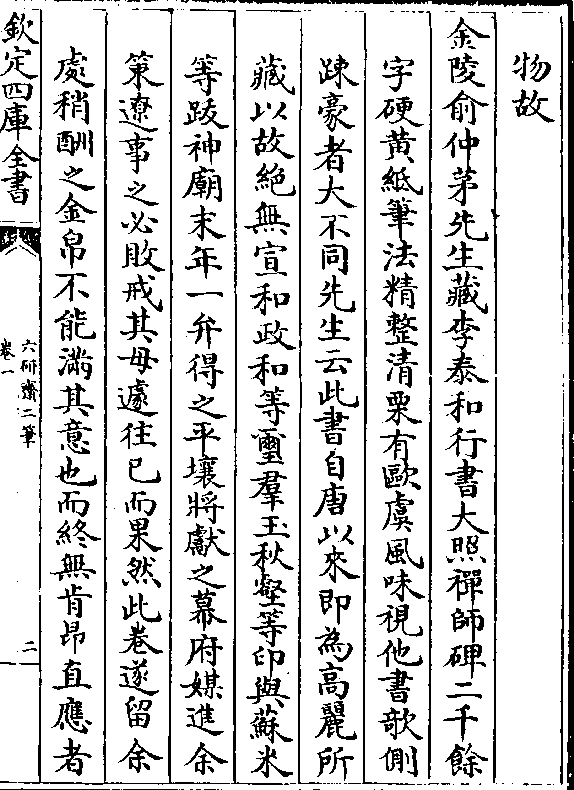 物故
金陵俞仲茅先生藏李泰和行書大照禪師碑二千餘
字硬黄紙筆法精整清栗有歐虞風味視他書欹側
疎豪者大不同先生云此書自唐以來即為高麗所
藏以故絶無宣和政和等璽羣玉秋壑等印與蘇米
等跋神廟末年一弁得之平壤將獻之幕府媒進余
策遼事之必敗戒其毋遽往已而果然此卷遂留余
處稍酬之金帛不能滿其意也而終無肯昂直應者
欽定四庫全書
六研齋二筆
卷一
二